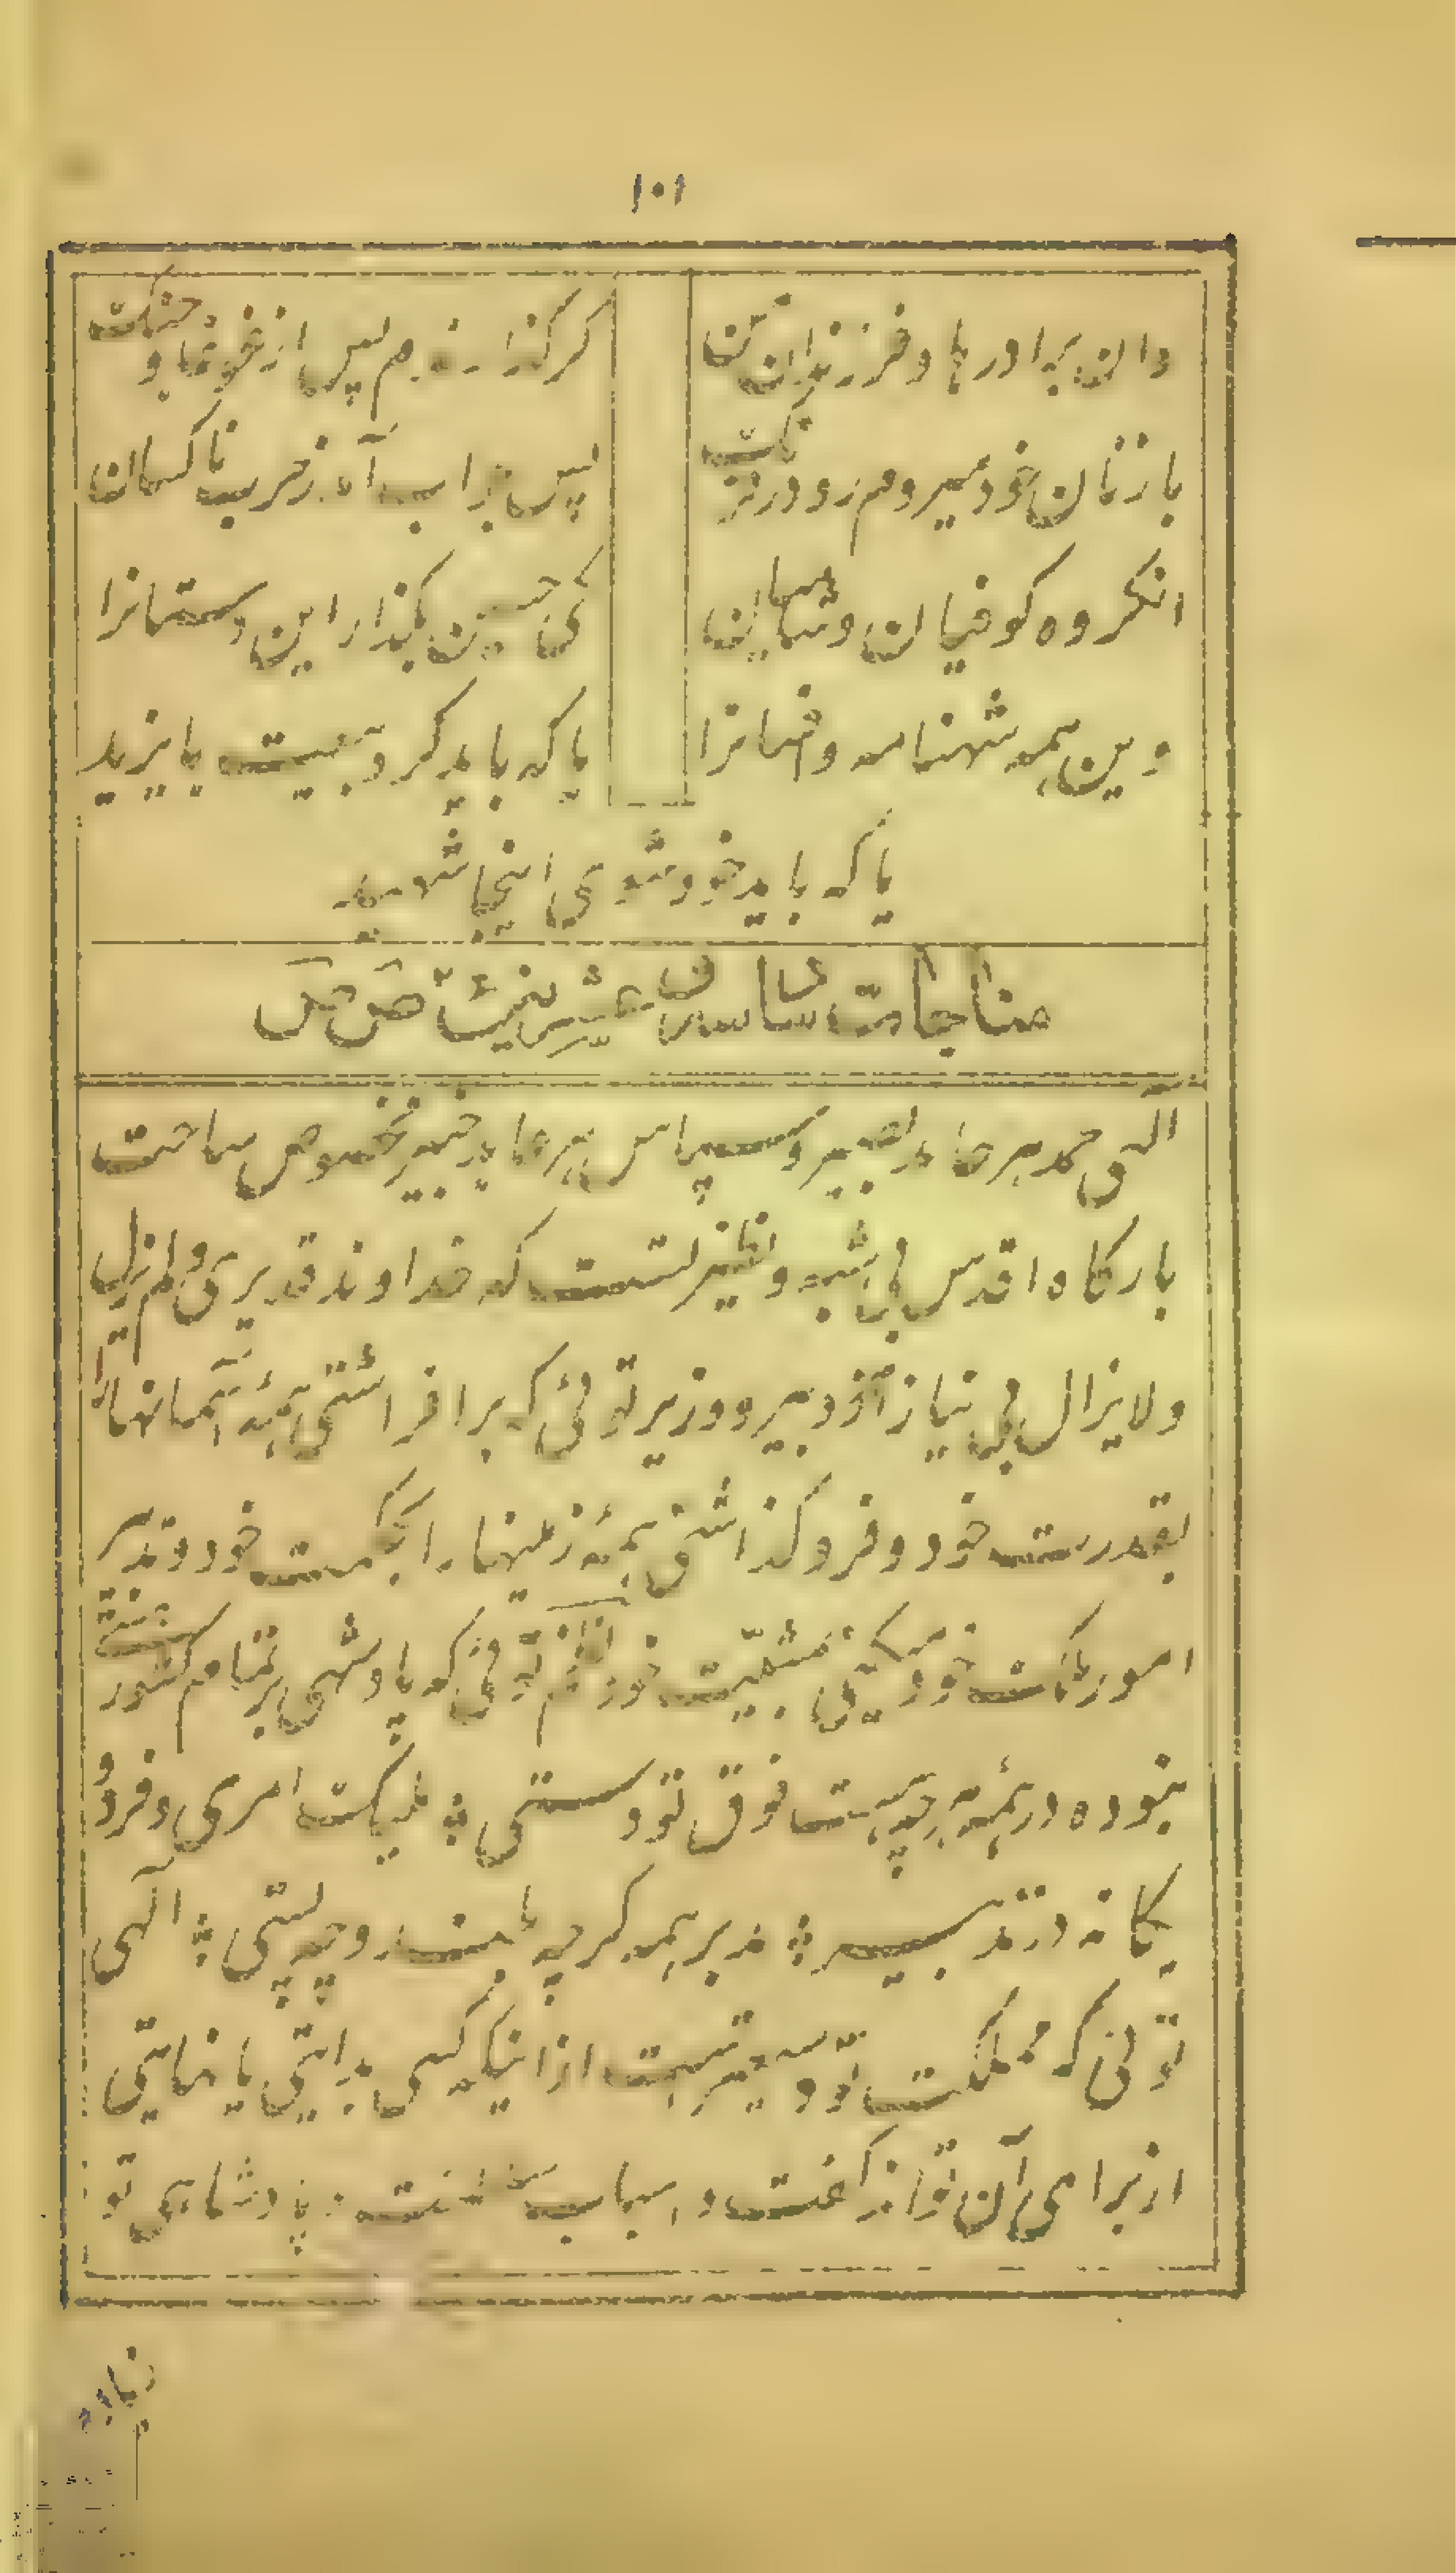 ۱۰۱
وان برادرها و فرزندان تن
کر کذارندم پس از غوغا و جنک
بازنان خود میروم زودرتر نک
پس جواب آمد ز حرب ناکسان
انکروه کوفیان و شامیان
کی حسین بگذار این دستانرا
وین همه شهنامه و افسانرا
یا که باید کرد بیعت با یزید
یا که باید خود شوی اینجا شهید
مناجات سادس عشر
الهی حمد بیرحد و بصیر و سپاس بیرعا خبیر مخصوص ساحت
بارکاه اقدس بی شبه و نظیر تست که خداوند قدیری و لم یزل
ولا یزال بی نیاز از دبیر و وزیر توئی که برافراشتی همهٔ آسمانها را
بقدرت خود و فروکذاشتی همهٔ زمینها را بحکمت خود و تدبیر
امور مملکت خود میکنی بمشیّت خود توئی که پادشهی بر تمام کشور
بنوده در همه چیست فوق تو دستی ٭ ملیکت امری و فرد و
یکانه در تدبیر ٭ مدبر همه کرچه بلند و چه پستی ٭ الهی
توئی که مملکت تو وسیعتر است از اینکه کسی بدایتی یا نهایتی
از برای آن تواند گفت و اسباب سلطنت و پادشاهی تو
زیاده